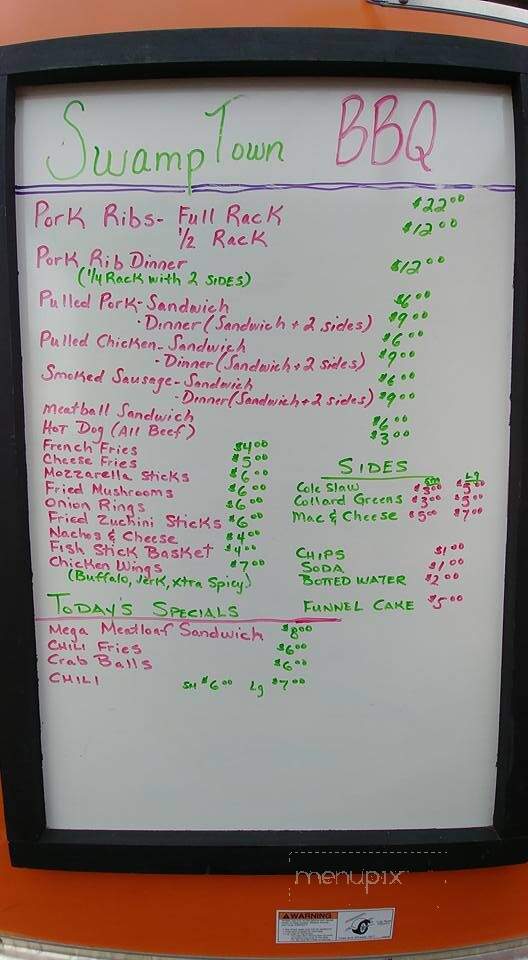 Swamp Town BBQ
Pork Ribs- Full Rack $22.00
1/2 Rack $12.00
Pork Rib Dinner $12.00
(1/4 Rack with 2 SIDES)
Pulled Pork-Sandwich $6.00
·Dinner (Sandwich + 2 sides) $9.00
Pulled Chicken-Sandwich $6.00
·Dinner (Sandwich + 2 sides) $9.00
Smoked Sausage-Sandwich $6.00
·Dinner (Sandwich + 2 sides) $9.00
Meatball Sandwich $6.00
HOT Dog (All Beef) $3.00
French Fries $4.00
Cheese Fries $5.00
Mozzarella Sticks $6.00
Fried Mushrooms $6.00
Onion Rings $6.00
Fried Zuchini Sticks $6.00
Nachos & Cheese $4.00
Fish Stick Basket $4.00
Chicken Wings $7.00
(Buffalo, Jerk, Xtra Spicy)
SIDES
Sm Lg
Cole Slaw $3.00 $5.00
Collard Greens $3.00 $5.00
Mac & Cheese $5.00 $7.00
CHIPS $1.00
SODA $1.00
BOTTED WATER $2.00
FUNNEL CAKE $5.00
TODAY'S SPECIALS
Mega Meatloaf Sandwich $8.00
CHILI Fries $6.00
Crab Balls $6.00
CHILI SM $6.00 Lg $7.00
menupix
WARNING